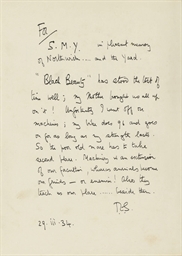 For
S.M.Y. in pleasant memory
of Northwich... and the Yard.
"Black Beauty" has stood the test of
time well; my Mother brought us all up
on it! Unfortunately I went off on
machines; my bike does 96 and goes
for so long as my strength lasts.
So the poor old mare has to take
second place. Machinery is an extension
of our faculties, whereas animals become
our friends — or enemies! Alive, they
teach us our place .... beside them.
TES
29. iii. 34.